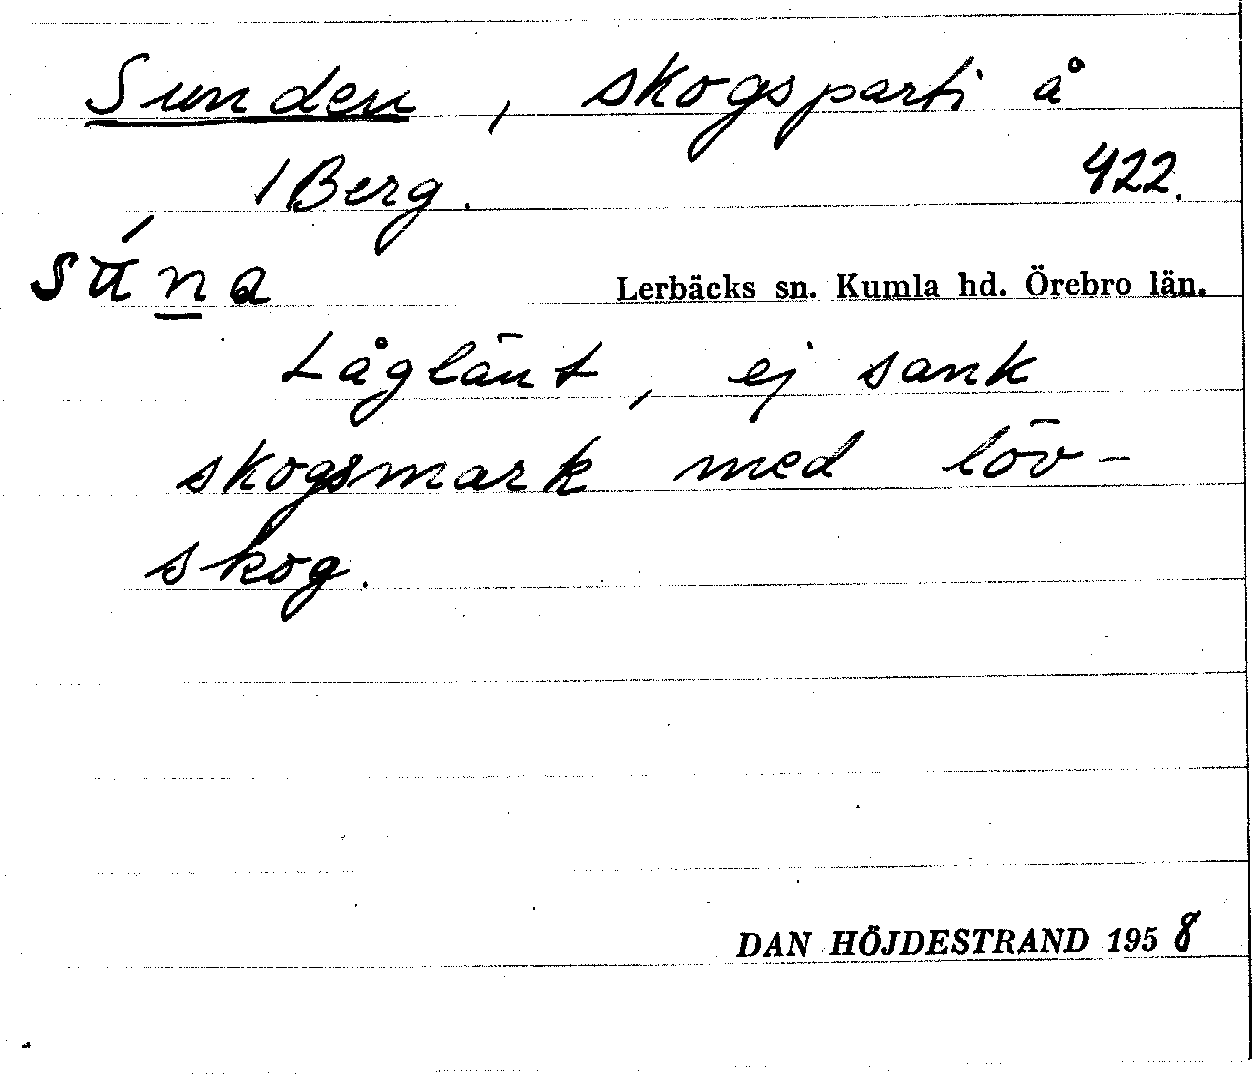 Sunden, skogsparti å
1 Berg. 422.
sú̵n̲a
Lerbäcks sn. Kumla hd. Örebro län.
Låglänt, ej sank
skogsmark med löv-
skog.
DAN HÖJDESTRAND 1958